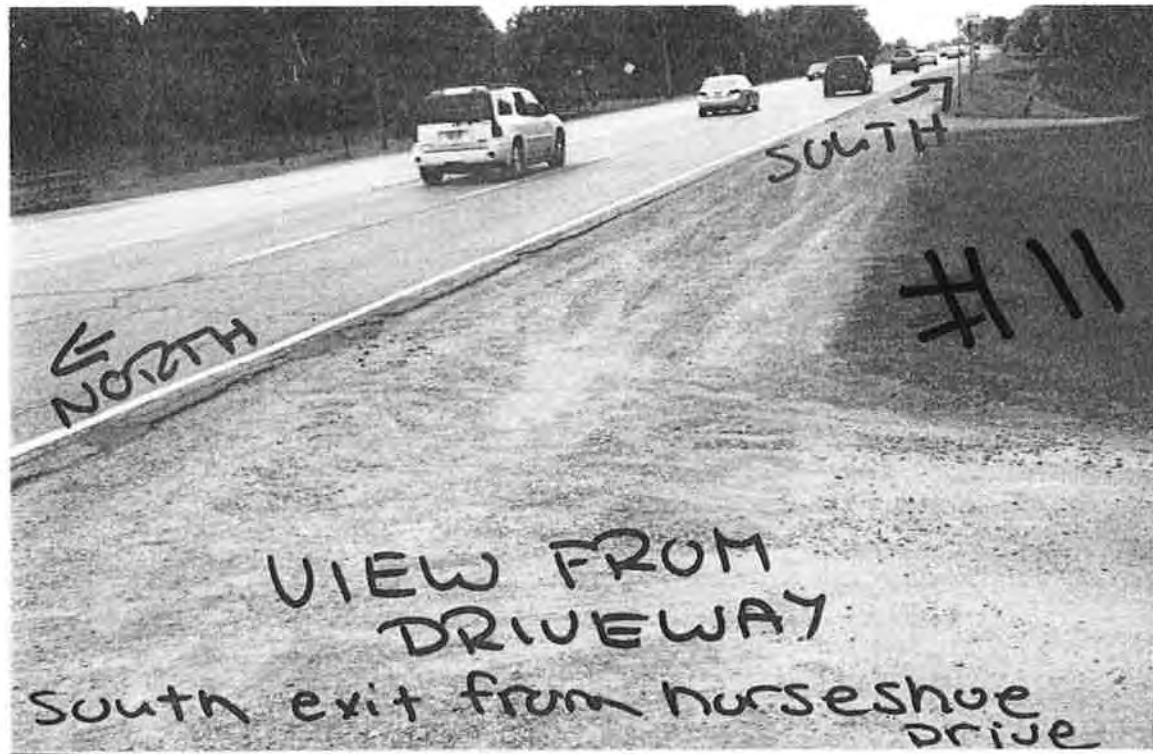 SOUTH
# 11
NORTH
VIEW FROM
DRIVEWAY
south exit from horseshoe
Drive